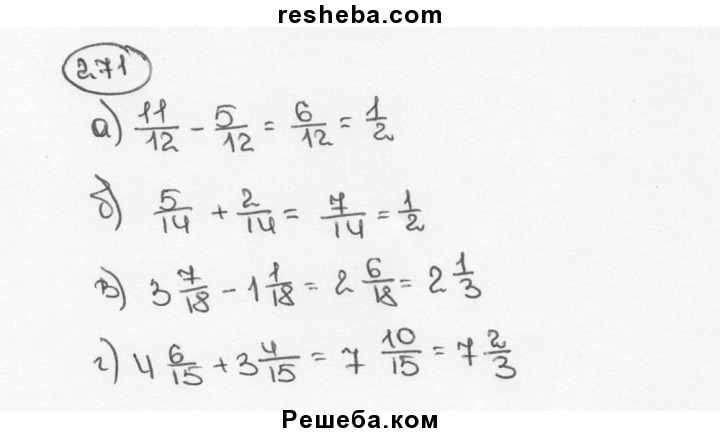 resheba.com
271
а) 11/12 - 5/12 = 6/12 = 1/2
б) 5/14 + 2/14 = 7/14 = 1/2
в) 3 7/18 - 1 1/18 = 2 6/18 = 2 1/3
г) 4 6/15 + 3 4/15 = 7 10/15 = 7 2/3
Решеба.ком